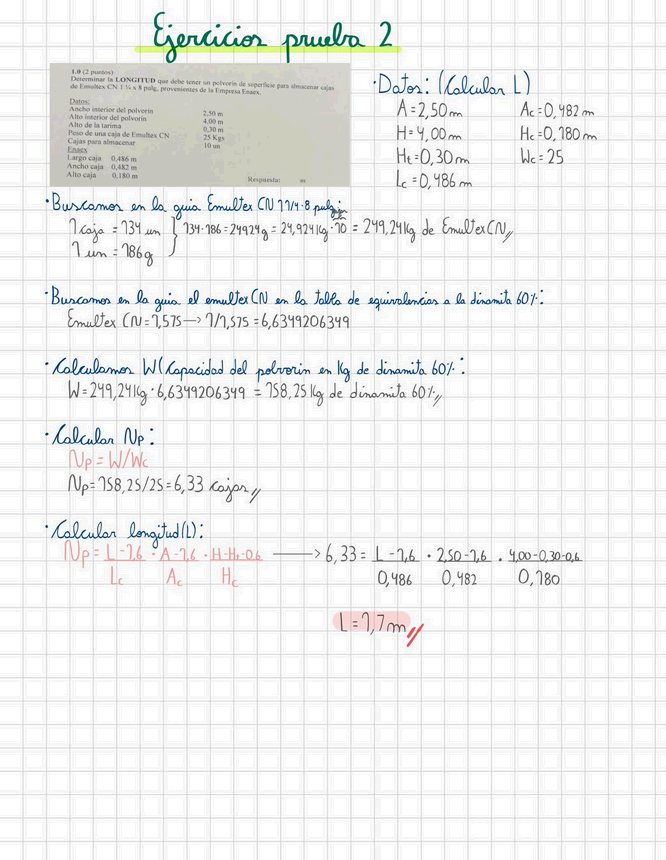 Ejercicios prueba 2
1.0 (2 puntos)
Determinar la LONGITUD que debe tener un polvorín de superficie para almacenar cajas
de Emultex CN 1 ¼ x 8 pulg, provenientes de la Empresa Enaex.
Datos:
Ancho interior del polvorín 2,50 m
Alto interior del polvorín 4,00 m
Alto de la tarima 0,30 m
Peso de una caja de Emultex CN 25 Kgs
Cajas para almacenar 10 un
Enaex
Largo caja 0,486 m
Ancho caja 0,482 m
Alto caja 0,180 m
Respuesta: m
·Datos: (Calcular L)
A=2,50m Ac=0,482m
H=4,00m Hc=0,180m
Ht=0,30m Wc=25
Lc=0,486m
·Buscamos en la guia Emultex CN 1 1/4·8 pulg:
1 caja = 134 un } 134·186=24924g = 24,924Kg·10 = 249,24Kg de Emultex CN//
1 un = 186g
·Buscamos en la guia el emultex CN en la tabla de equivalencias a la dinamita 60%:
Emultex CN=1,575 → 1/1,575=6,6349206349
·Calculamos W(Capacidad del polvorin en Kg de dinamita 60%:
W=249,24Kg·6,6349206349 = 158,25Kg de dinamita 60%//
·Calcular Np:
Np=W/Wc
Np=158,25/25=6,33 cajas//
·Calcular longitud(L):
Np= L-1,6 · A-1,6 · H-Ht-0,6 → 6,33= L-1,6 · 2,50-1,6 · 4,00-0,30-0,6
Lc Ac Hc 0,486 0,482 0,180
L=1,7m//